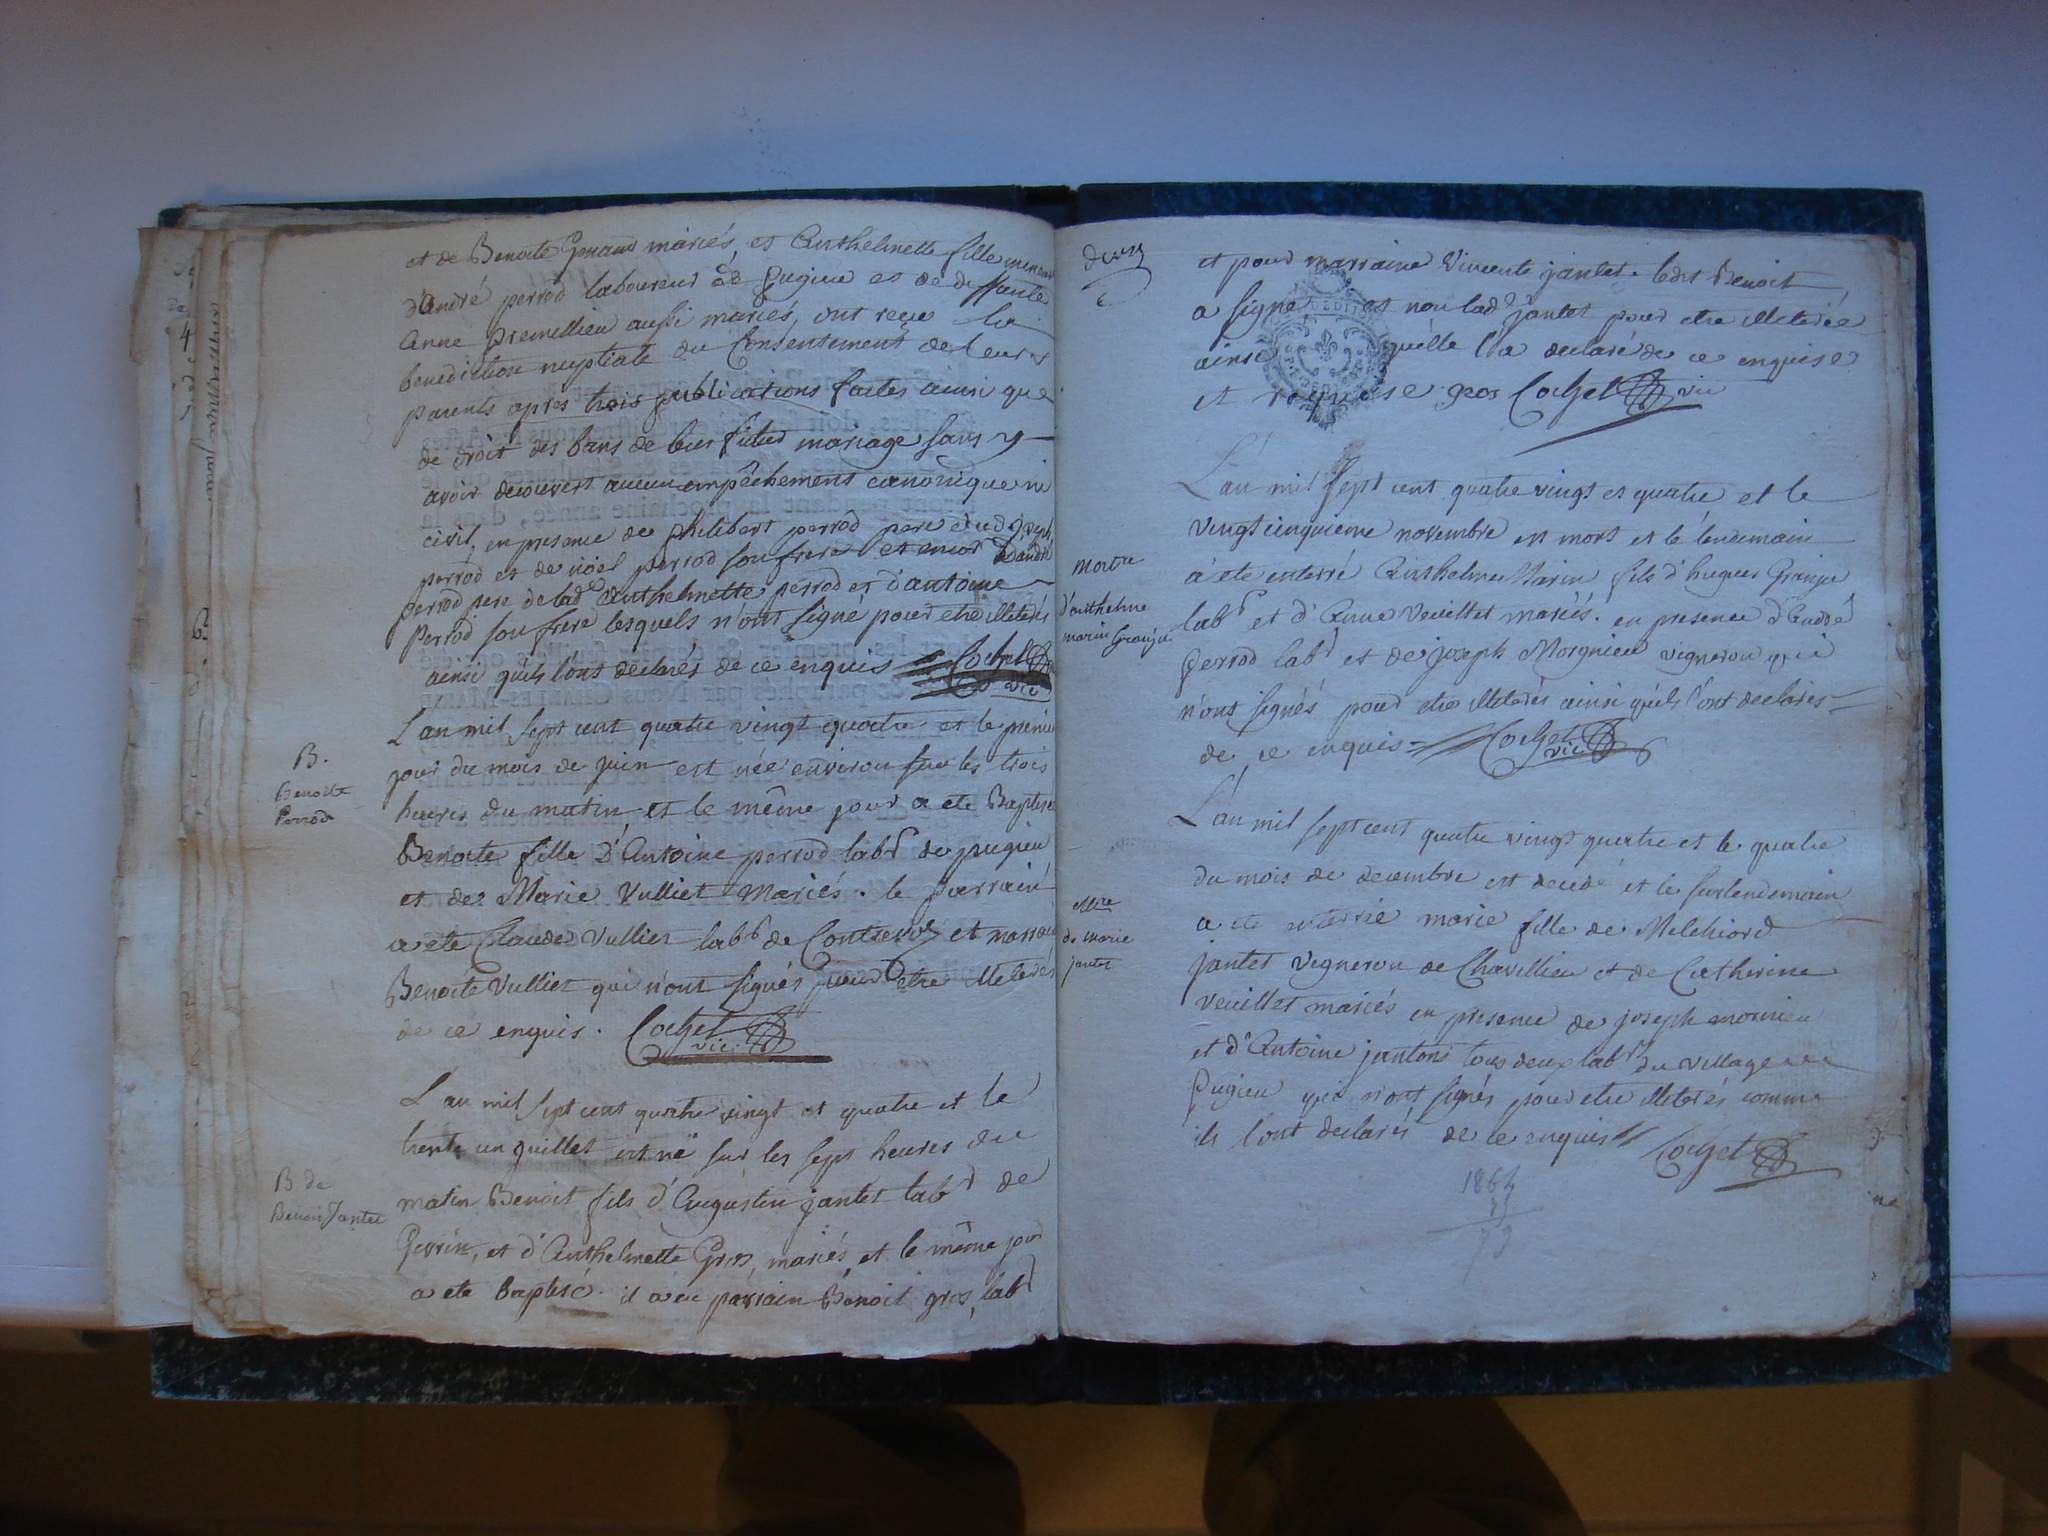 et de Benoite Genaud mariés, et Anthelmette fille mineure
d'André perrod laboureur de Pugieu et de deffunte
Anne Premillieu aussi mariés, ont reçu la
benediction nuptiale du Consentement de leurs
parents apres trois publications faites ainsi que
de droit des bans de leur futur mariage sans y
avoir decouvert aucun empêchement canonique ni
civil, en presence de philibert perrod pere dud. joseph
perrod et de nöel perrod son frere et encor d'andré
perrod pere de lad.e Anthelmette perrod et d'antoine
Perrod son frere lesquels n'ont signé pour etre illeterés
ainsi qu'ils l'ont déclarés de ce enquis Cochet
vic
B.
Benoite
Perrod
L'an mil sept cent quatre vingt quatre et le premier
jour du mois de juin est née environ sur les trois
heures du matin et le même jour a ete Baptisée
Benoite fille d'Antoine perrod labr de pugieu
et de Marie Vulliet Mariés. le parrain
a ete Claude Vulliet labr de Contrevoz et marraine
Benoite Vulliet qui n'ont signés pour etre illeterés
de ce enquis. Cochet
vic.
B de
Benoit Jantet
L'an mil sept cent quatre vingt et quatre et le
trente un juillet est né sur les sept heures du
matin Benoit fils d'Augustin jantet labr de
et d'Anthelmette Gros, mariés, et le même jour
a ete Baptisé. il a eu parrain Benoit gros, labr
et pour marraine Vincente jantet. ledit Benoit
a signé et non lad.e jantet pour etre illeterée
ainsi quelle l'a declaré de ce enquise
et requise gros Cochet vic
Mortre
d'anthelme
marin Granju
L'an mil sept cent quatre vingt et quatre et le
vingt cinquieme novembre est mort et le lendemain
à ete enterré Anthelme Marin fils d'hugues Granju
labr et d'Anne Veuillet mariés. en presence d'André
perrod labr et de joseph Morgnieu vigneron qui
n'ont signés pour etre illeterés ainsi qu'ils l'ont declarés
de ce enquis Cochet
vic
de marie
jantet
L'an mil sept cent quatre vingt quatre et le quatre
du mois de decembre est decedé et le surlendemain
a ete enterrée marie fille de Melchiord
jantet vigneron de Chavillieu et de Catherine
Veuillet mariés en presence de joseph morinieu
et d'Antoine jantons tous deux labrs du village de
Pugieu qui n'ont signés pour etre illeterés comme
ils l'ont declarés de ce enquis Cochet
1864